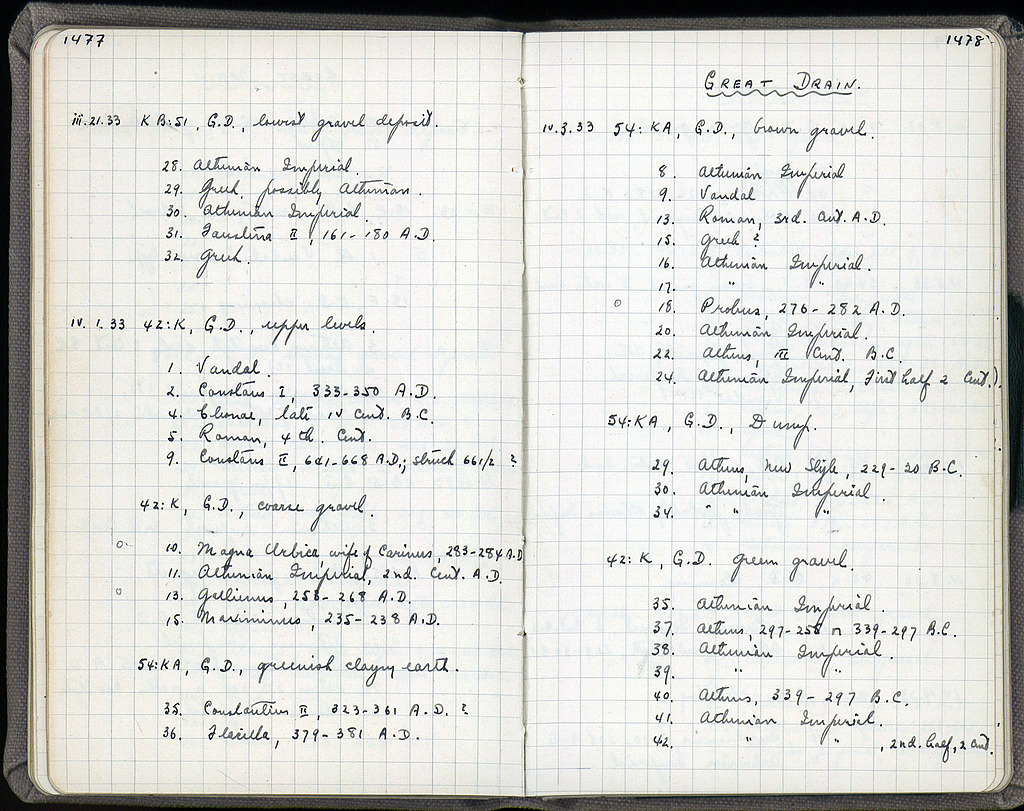 1477
iii.21.33 KB:51, G.D., lowest gravel deposit.
28. Athenian Imperial.
29. Greek, possibly Athenian.
30. Athenian Imperial.
31. Faustina II, 161-180 A.D.
32. Greek.
iv.1.33 42:K, G.D., upper levels.
1. Vandal.
2. Constans I, 333-350 A.D.
4. Cleonae, late IV Cent. B.C.
5. Roman, 4th. Cent.
9. Constans II, 641-668 A.D.; struck 661/2 ?
42:K, G.D., coarse gravel.
10. Magna Urbica, wife of Carinus, 283-284 A.D.
11. Athenian Imperial, 2nd. Cent. A.D.
13. Gallienus, 253-268 A.D.
15. Maximinus, 235-238 A.D.
54:KA, G.D., greenish clayey earth.
35. Constantius II, 323-361 A.D. ?
36. Flacilla, 379-381 A.D.
1478
GREAT DRAIN.
iv.3.33 54:KA, G.D., brown gravel.
8. Athenian Imperial
9. Vandal
13. Roman, 3rd. Cent. A.D.
15. Greek ?
16. Athenian Imperial.
17. " "
18. Probus, 276-282 A.D.
20. Athenian Imperial.
22. Athens, III Cent. B.C.
24. Athenian Imperial, First half 2 Cent.).
54:KA, G.D., Dump.
29. Athens, New Style, 229-30 B.C.
30. Athenian Imperial.
34. " " "
42:K, G.D. green gravel.
35. Athenian Imperial.
37. Athens, 297-255 or 339-297 B.C.
38. Athenian Imperial.
39. " "
40. Athens, 339-297 B.C.
41. Athenian Imperial.
42. " " , 2nd. half, 2 Cent.